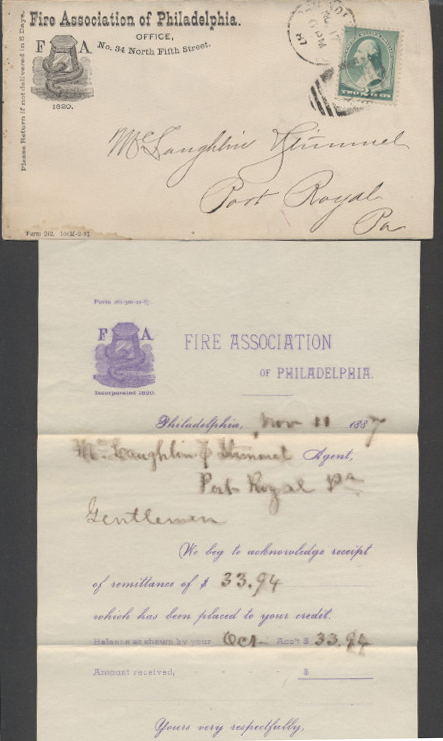 Fire Association of Philadelphia.
OFFICE,
No. 34 North Fifth Street.
F A.
1820.
Please Return if not delivered in 5 Days.
TWO CENTS
McLaughlin & Kimmel
Port Royal
Pa
Form 262.
F A.
Incorporated 1820.
FIRE ASSOCIATION
OF PHILADELPHIA.
Philadelphia, Nov 11 1887
McLaughlin & Kimmel Agent,
Port Royal Pa
Gentlemen
We beg to acknowledge receipt
of remittance of $ 33.94
which has been placed to your credit.
Balance as shown by your Oct. Acc't $ 33.94
Amount received, $
Yours very respectfully,